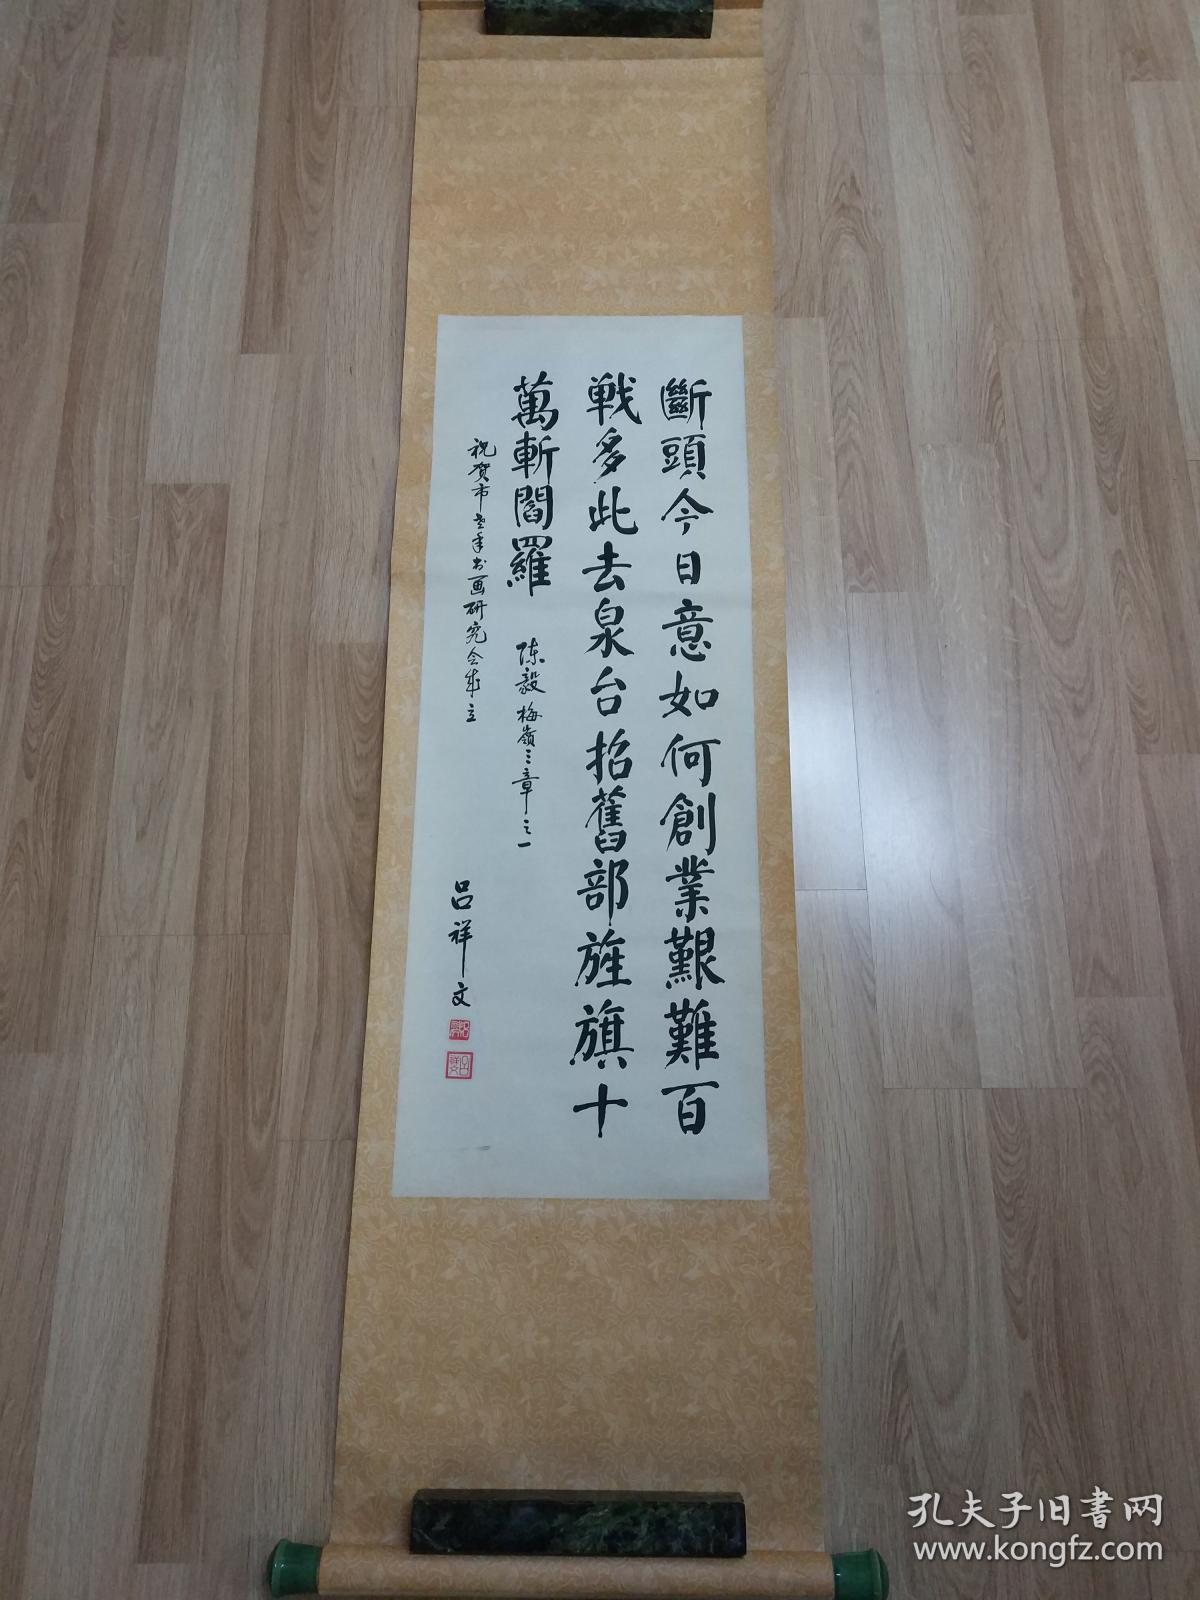 斷頭今日意如何創業艱難百
戦多此去泉台招舊部旌旗十
萬斬閻羅
陈毅梅嶺三章之一
祝贺市老年书画研究会成立
吕祥文
孔夫子旧書网
www.kongfz.com